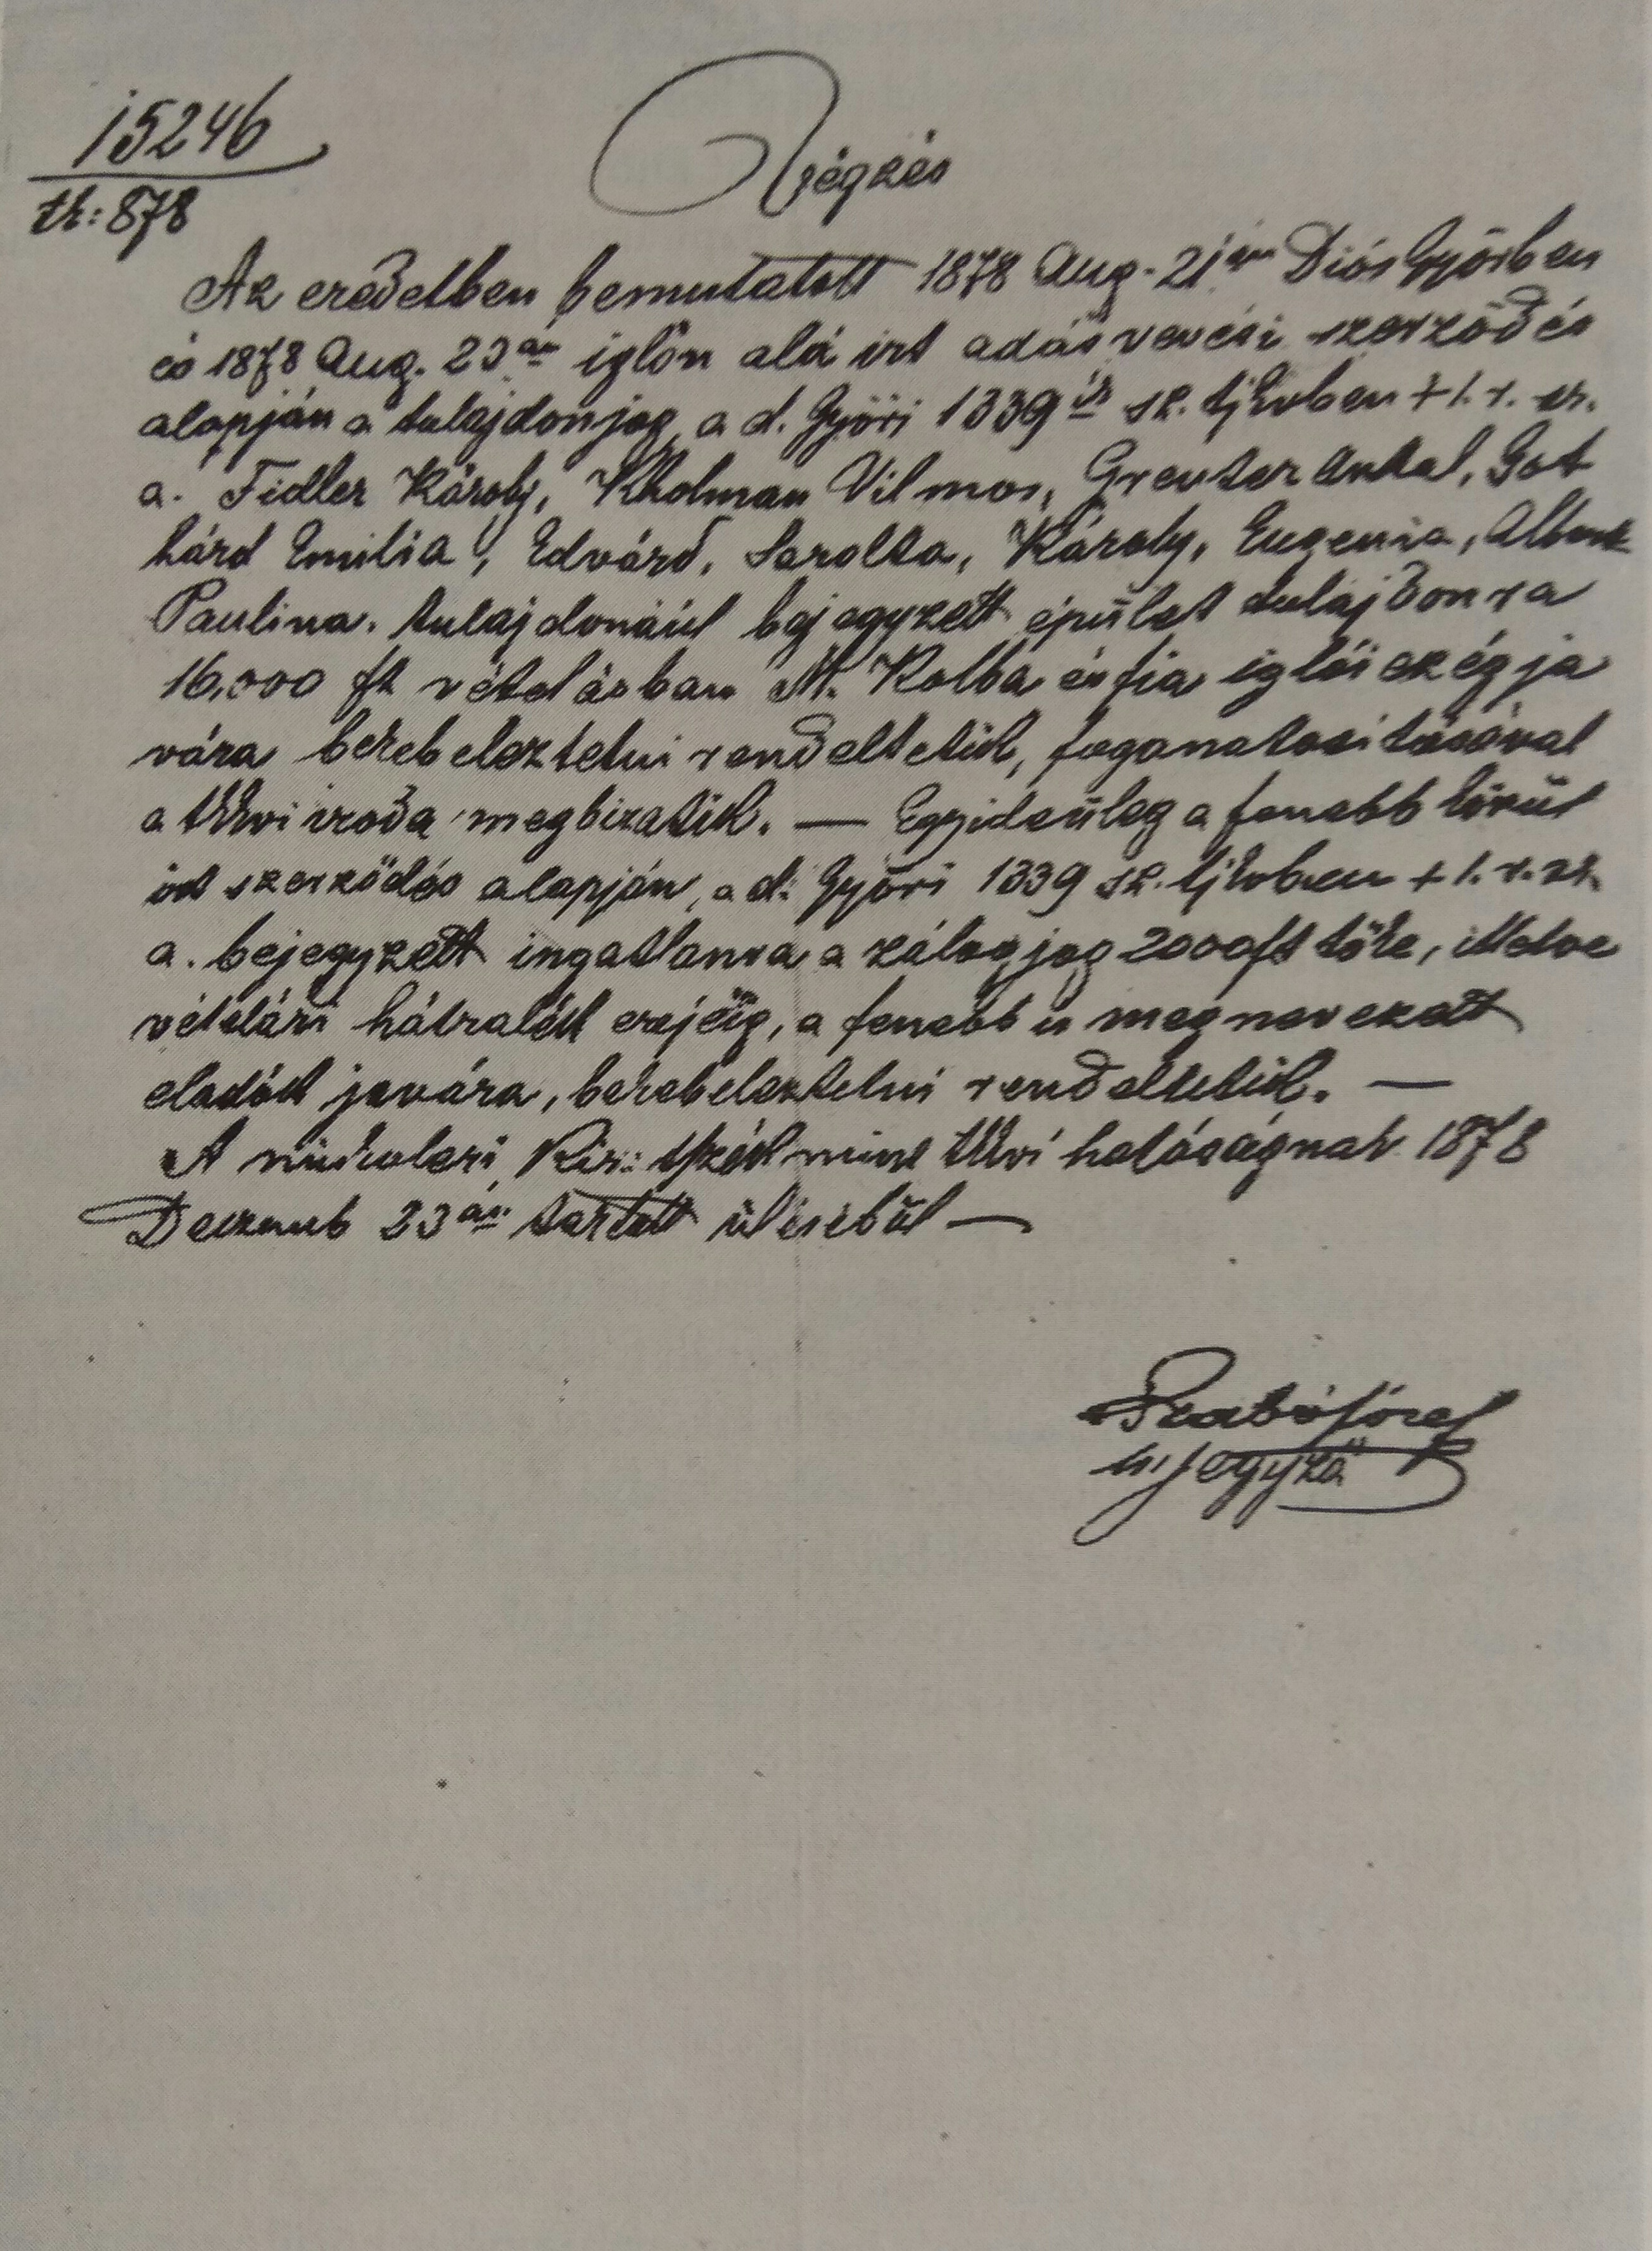 15246
tk: 878
Végzés
Az eredetben bemutatott 1878 Aug. 21én DiósGyőrben
és 1878 Aug. 23án iglón alá irt adás vevési szerződés
alapján a tulajdonjog a d. Győri 1339 sz. tjkvben + 1. r. sz.
a. Fidler Károly, Kholman Vilmos, Greutser Antal, Got
hárd Emilia, Edvárd, Sarolta, Károly, Eugenia,
Paulina. tulajdonául bejegyzett épület tulajdonra
16.000 ft vételárban M. Kolba és fia iglói czég ja
vára bekebeleztetni rendeltetik, foganatositásával
a tkkvi iroda megbizatik. — Egyidejüleg a fenebb körül
irt szerződés alapján, a d. Győri 1339 sz. tjkvben + 1. r. sz.
a. bejegyzett ingatlanra a zálogjog 2000ft tőke, illetve
vételári hátralék erejéig, a fenebb is megnevezett
eladók javára, bekebeleztetni rendeltetik. —
A miskolczi Kir: tszék mint tkkvi hatóságnak 1878
Decemb 23án tartott üléséből —
Szabó József
jegyző